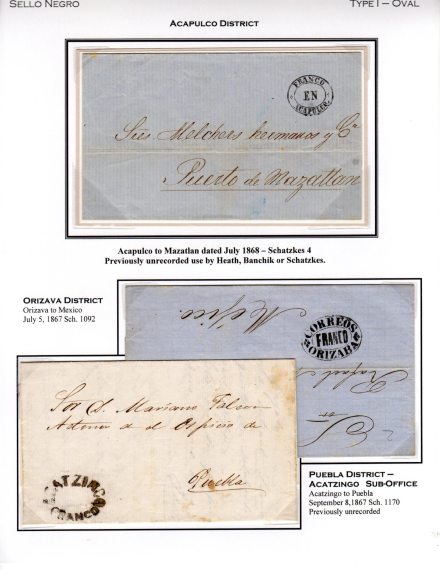 SELLO NEGRO
TYPE I – OVAL
ACAPULCO DISTRICT
FRANCO
EN
ACAPULCO.
Sres. Melchers hermanos y Ca
Puerto de Mazatlan
Acapulco to Mazatlan dated July 1868 – Schatzkes 4
Previously unrecorded use by Heath, Banchik or Schatzkes.
ORIZAVA DISTRICT
Orizava to Mexico
July 5, 1867 Sch. 1092
Méjico
CORREOS
FRANCO
ORIZABA
Sor D. Mariano
de
Puebla
ACATZINGO
FRANCO
PUEBLA DISTRICT –
ACATZINGO SUB-OFFICE
Acatzingo to Puebla
September 8,1867 Sch. 1170
Previously unrecorded